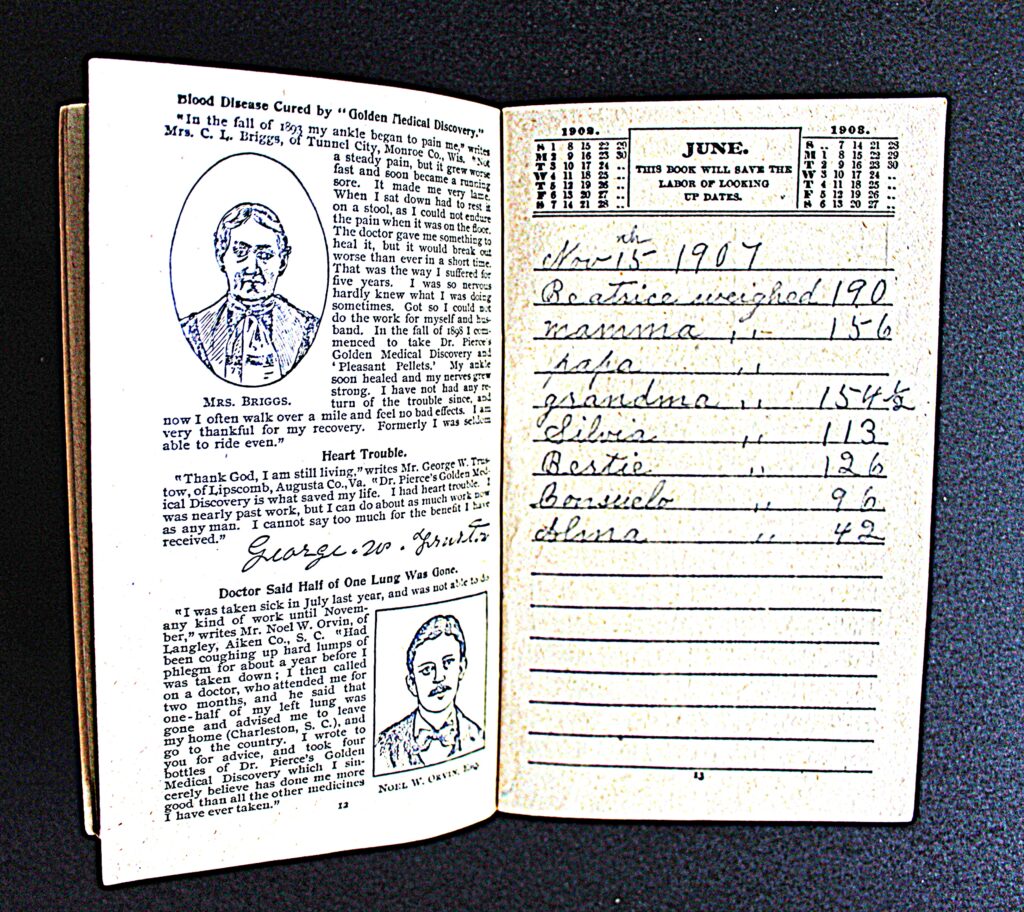 Blood Disease Cured by "Golden Medical Discovery."
"In the fall of 1893 my ankle began to pain me," writes
Mrs. C. L. Briggs, of Tunnel City, Monroe Co., Wis. "Not
a steady pain, but it grew worse
fast and soon became a running
sore. It made me very lame.
When I sat down had to rest it
on a stool, as I could not endure
the pain when it was on the floor.
The doctor gave me something to
heal it, but it would break out
worse than ever in a short time.
That was the way I suffered for
five years. I was so nervous
hardly knew what I was doing
sometimes. Got so I could not
do the work for myself and hus-
band. In the fall of 1898 I com-
menced to take Dr. Pierce's
Golden Medical Discovery and
'Pleasant Pellets.' My ankle
soon healed and my nerves grew
strong. I have not had any re-
turn of the trouble since, and
MRS. BRIGGS.
now I often walk over a mile and feel no bad effects. I am
very thankful for my recovery. Formerly I was seldom
able to ride even."
Heart Trouble.
"Thank God, I am still living," writes Mr. George W. Trus-
tow, of Lipscomb, Augusta Co., Va. "Dr. Pierce's Golden Med-
ical Discovery is what saved my life. I had heart trouble. I
was nearly past work, but I can do about as much work now
as any man. I cannot say too much for the benefit I have
received."
George. W.
Doctor Said Half of One Lung Was Gone.
"I was taken sick in July last year, and was not able to do
any kind of work until Novem-
ber," writes Mr. Noel W. Orvin, of
Langley, Aiken Co., S. C. "Had
been coughing up hard lumps of
phlegm for about a year before I
was taken down; I then called
on a doctor, who attended me for
two months, and he said that
one-half of my left lung was
gone and advised me to leave
my home (Charleston, S. C.), and
go to the country. I wrote to
you for advice, and took four
bottles of Dr. Pierce's Golden
Medical Discovery which I sin-
cerely believe has done me more
good than all the other medicines
I have ever taken."
NOEL W. ORVIN, ESQ.
12
1902.
S 1 8 15 22 29
M 2 9 16 23 30
T 3 10 17 24 ..
W 4 11 18 25 ..
T 5 12 19 26 ..
F 6 13 20 27 ..
S 7 14 21 28 ..
JUNE.
THIS BOOK WILL SAVE THE
LABOR OF LOOKING
UP DATES.
1903.
S .. 7 14 21 28
M 1 8 15 22 29
T 2 9 16 23 30
W 3 10 17 24 ..
T 4 11 18 25 ..
F 5 12 19 26 ..
S 6 13 20 27 ..
Nov 15th 1907
Beatrice weighed 190
mamma ,, 156
papa ,,
grandma ,, 154 1/2
Silvia ,, 113
Bertie ,, 126
Consuelo 96
Alma ,, 42
13